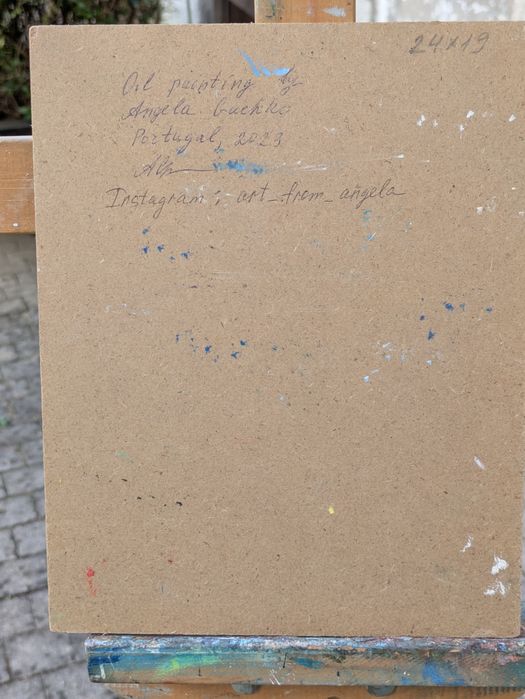 24x19
Oil painting by
Angela Guchko
Portugal, 2023
Instagram: art_from_angela